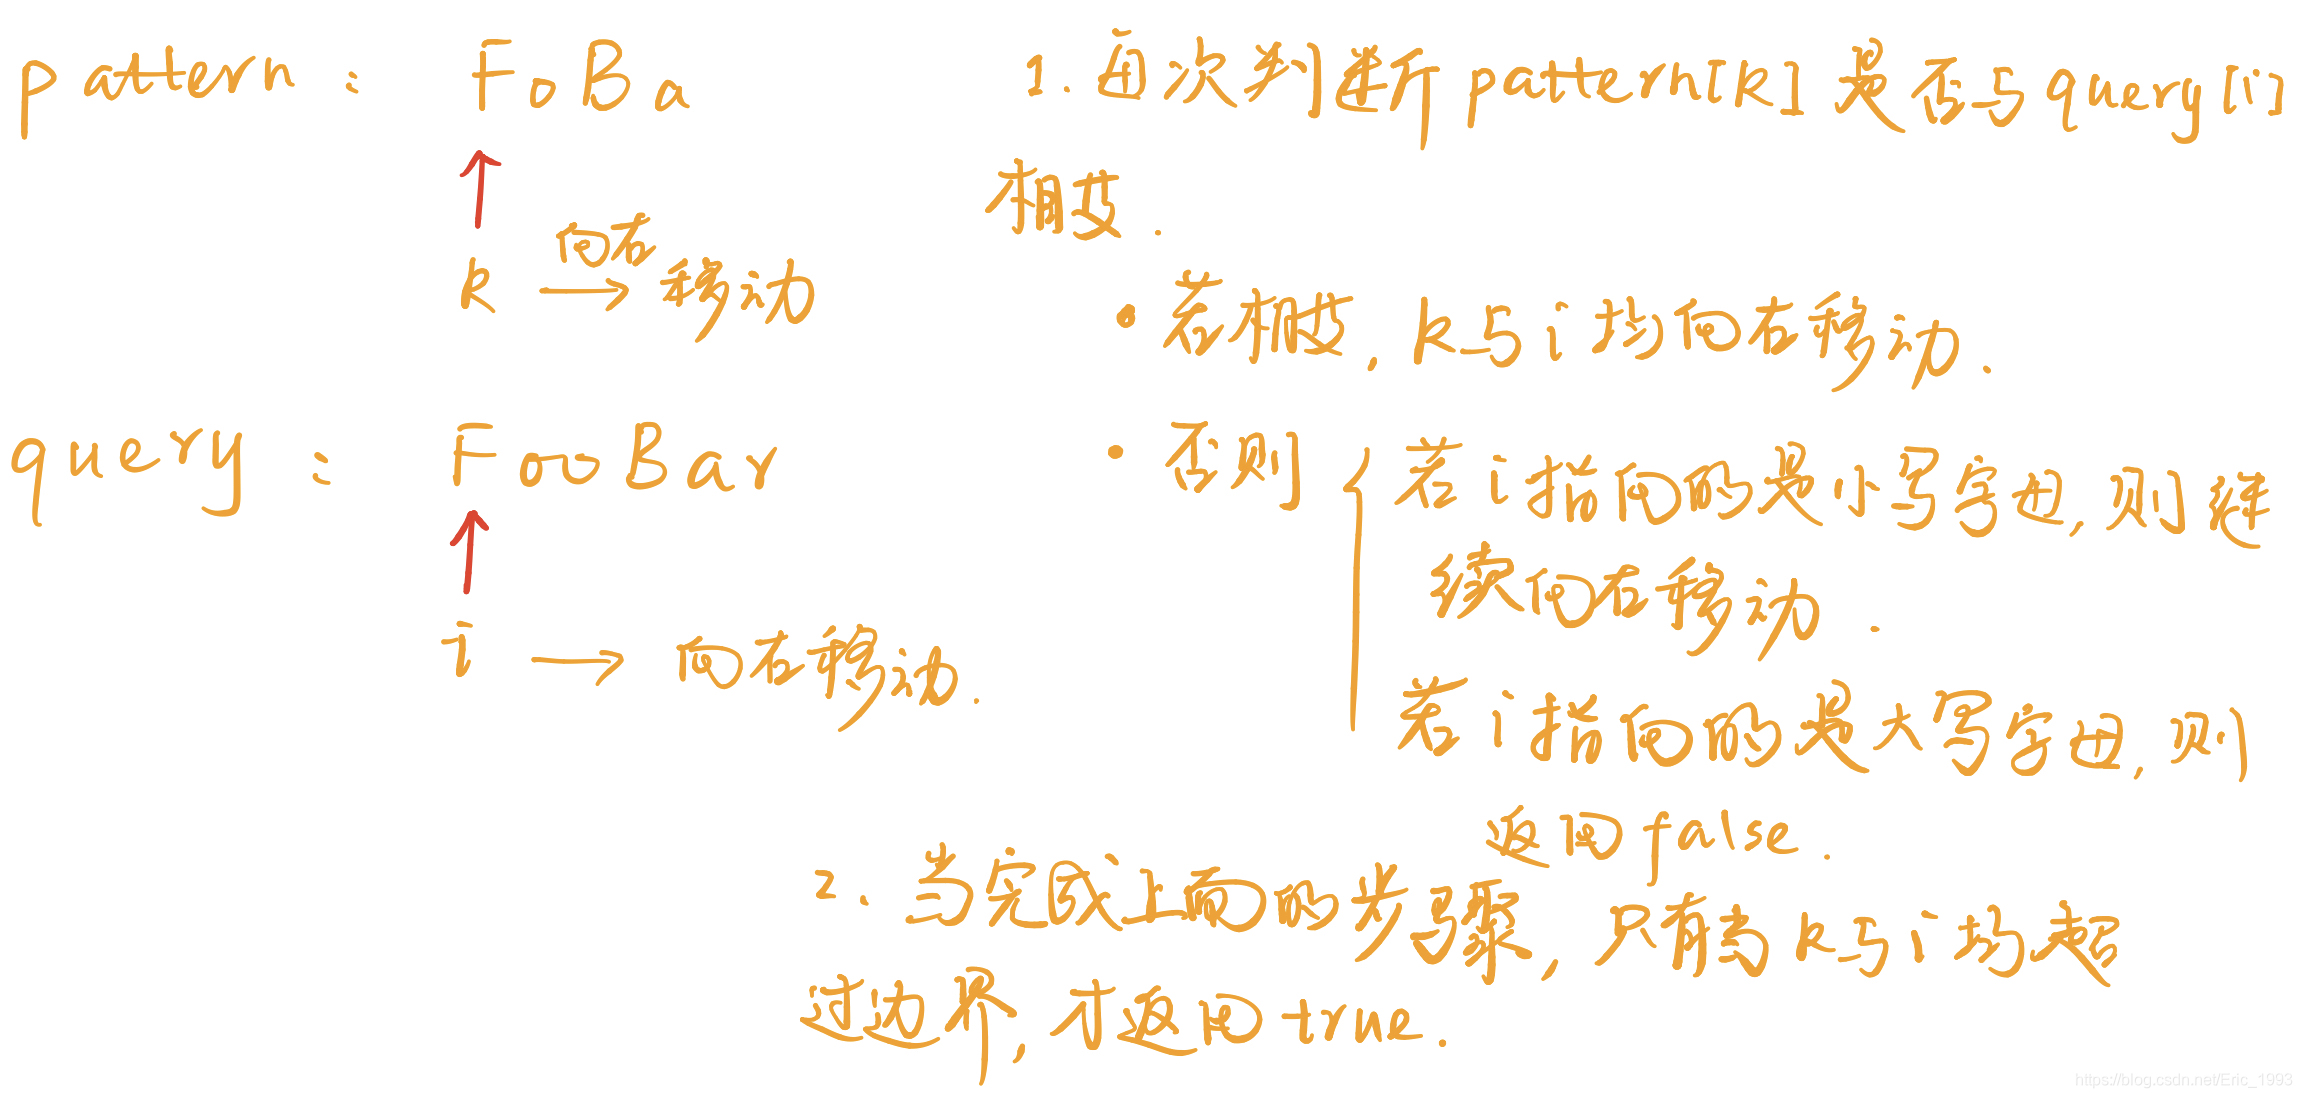 pattern: FoBa
k 向右移动
query: FooBar
i 向右移动.
1. 每次判断pattern[k]是否与query[i]
相皮.
• 若相皮, k与i均向右移动.
• 否则
若i指向的是小写字母, 则继
续向右移动.
若i指向的是大写字母, 则
返回false.
2. 当完成上面的步骤, 只有当k与i均超
过边界, 才返回true.
https://blog.csdn.net/Eric_1993